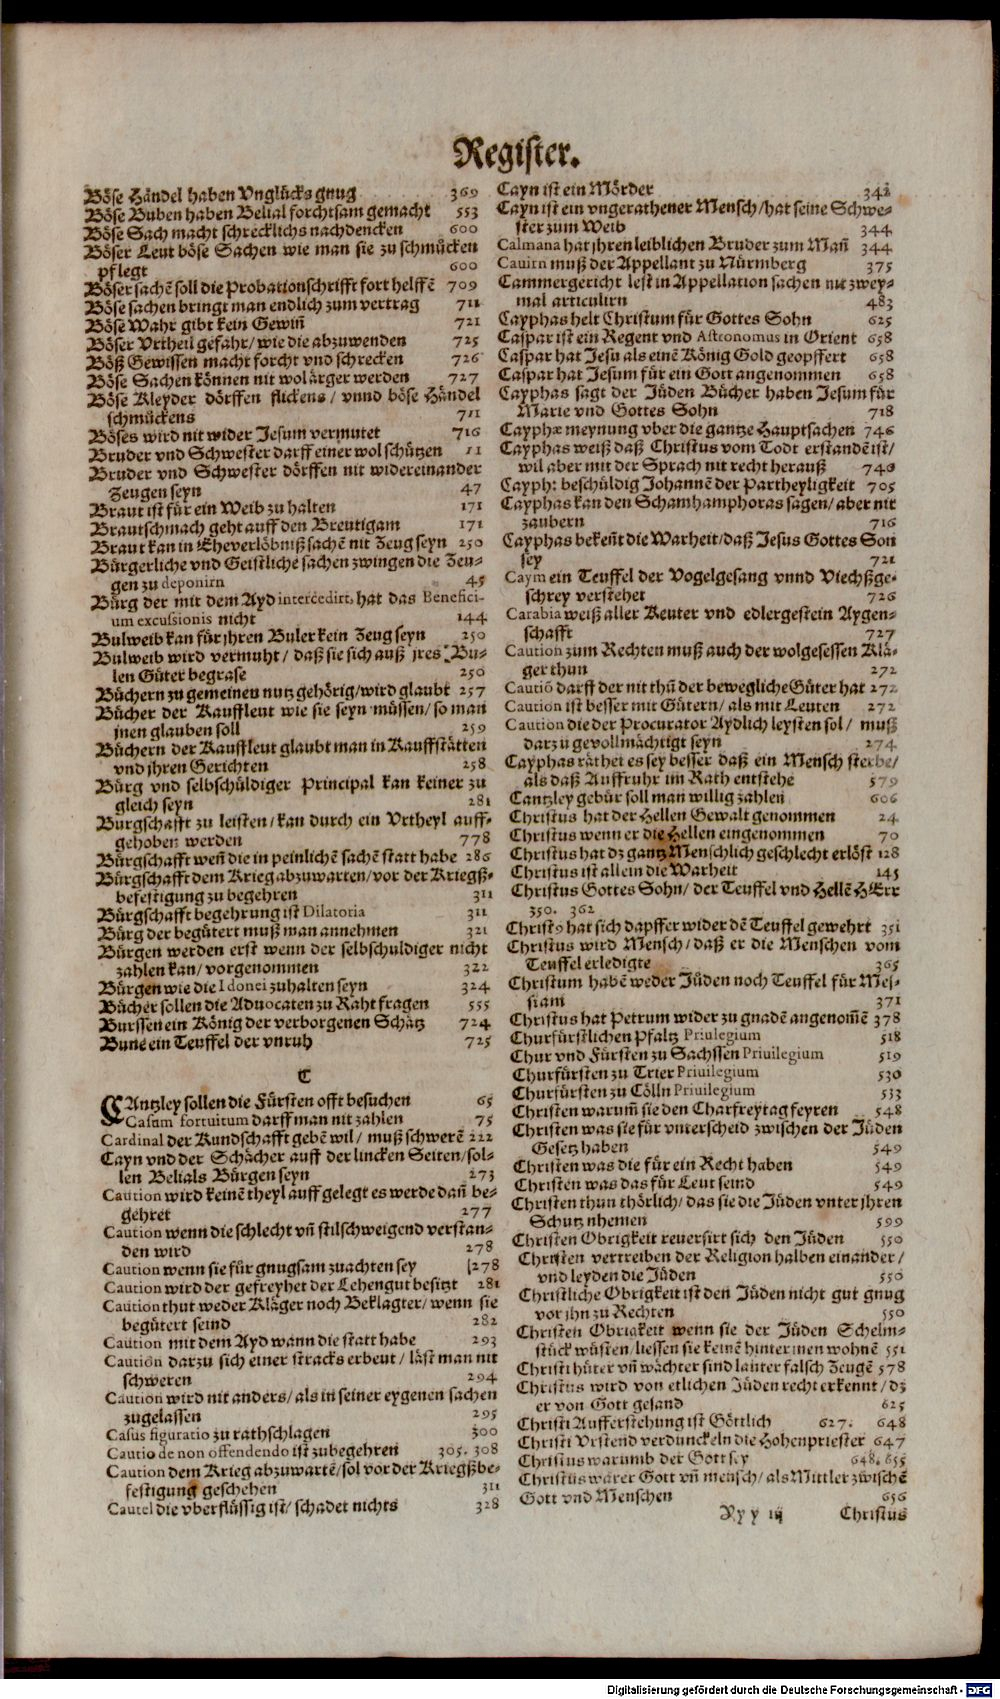 Register.
Böse Händel haben Vnglücks gnug 369
Böse Buben haben Belial forchtsam gemacht 553
Böse Sach macht schrecklichs nachdencken 600
Böser Leut böse Sachen wie man sie zu schmücken
pflegt 600
Böser sachē soll die Probationschrifft fort helffē 709
Böse sachen bringt man endlich zum vertrag 711
Böse Wahr gibt kein Gewiñ 721
Böser Vrtheil gefahr/ wie die abzuwenden 725
Böß Gewissen macht forcht vnd schrecken 726
Böse Sachen können nit wol ärger werden 727
Böse Kleyder dörffen flickens / vnnd böse Händel
schmückens 711
Böses wird nit wider Jesum vermutet 716
Bruder vnd Schwester darff einer wol schützen 11
Bruder vnd Schwester dörffen nit widereinander
Zeugen seyn 47
Braut ist für ein Weib zu halten 171
Brautschmach geht auff den Breutigam 171
Braut kan in Eheverlöbniß sachē nit Zeug seyn 250
Bürgerliche vnd Geistliche sachen zwingen die Zeu-
gen zu deponirn 45
Bürg der mit dem Ayd intercedirt, hat das Benefici-
um excussionis nicht 144
Bulweib kan für jhren Buler kein Zeug seyn 250
Bulweib wird vermuht / daß sie sich auß jres Bu-
len Güter begrase 250
Büchern zu gemeinen nutz gehörig/wird glaubt 257
Bücher der Kauffleut wie sie seyn müssen/ so man
jnen glauben soll 259
Büchern der Kauffleut glaubt man in Kauffstätten
vnd jhren Gerichten 258
Bürg vnd selbschüldiger Principal kan keiner zu
gleich seyn 281
Burgschafft zu leisten/kan durch ein Vrtheyl auff-
gehoben werden 778
Bürgschafft weñ die in peinlichē sachē statt habe 286
Bürgschafft dem Krieg abzuwarten/vor der Kriegß-
befestigung zu begehren 311
Bürgschafft begehrung ist Dilatoria 311
Bürg der begütert muß man annehmen 321
Bürgen werden erst wenn der selbschuldiger nicht
zahlen kan/ vorgenommen 322
Bürgen wie die Idonei zuhalten seyn 324
Bücher sollen die Advocaten zu Raht fragen 555
Burssen ein König der verborgenen Schätz 724
Bune ein Teuffel der vnruh 725
C
CAntzley sollen die Fürsten offt besuchen 65
Casum fortuitum darff man nit zahlen 75
Cardinal der Kundschafft gebē wil/ muß schwerē 222
Cayn vnd der Schächer auff der lincken Seiten/sol-
len Belials Bürgen seyn 273
Caution wird keinē theyl auff gelegt es werde dañ be-
gehret 277
Caution wenn die schlecht vñ stilschweigend verstan-
den wird 278
Caution wenn sie für gnugsam zuachten sey 278
Caution wird der gefreyhet der Lehengut besitzt 281
Caution thut weder Kläger noch Beklagter/ wenn sie
begütert seind 282
Caution mit dem Ayd wann die statt habe 293
Caution darzu sich einer stracks erbeut / läst man nit
schweren 294
Caution wird nit anders/ als in seiner eygenen sachen
zugelassen 295
Casus figuratio zu rathschlagen 300
Cautio de non offendendo ist zubegehren 305. 308
Caution dem Krieg abzuwartē/sol vor der Kriegßbe-
festigung geschehen 311
Cautel die vberflüssig ist/ schadet nichts 328
Cayn ist ein Mörder 342
Cayn ist ein vngerathener Mensch/hat seine Schwe-
ster zum Weib 344
Calmana hat jhren leiblichen Bruder zum Mañ 344
Cauirn muß der Appellant zu Nürmberg 375
Cammergericht lest in Appellation sachen nit zwey-
mal articulirn 483
Cayphas helt Christum für Gottes Sohn 625
Caspar ist ein Regent vnd Astronomus in Orient 658
Caspar hat Jesu als einē König Gold geopffert 658
Caspar hat Jesum für ein Gott angenommen 658
Cayphas sagt der Jüden Bücher haben Jesum für
Marie vnd Gottes Sohn 718
Cayphæ meynung vber die gantze Hauptsachen 746
Cayphas weiß daß Christus vom Todt erstandē ist/
wil aber mit der Sprach nit recht herauß 740
Cayph: beschüldig Johannē der Partheyligkeit 705
Cayphas kan den Schamhamphoras sagen/ aber nit
zaubern 716
Cayphas bekeñt die Warheit/daß Jesus Gottes Son
sey 721
Caym ein Teuffel der Vogelgesang vnnd Viechßge-
schrey verstehet 726
Carabia weiß aller Keuter vnd edlergestein Aygen-
schafft 727
Caution zum Rechten muß auch der wolgesessen Klä-
ger thun 272
Cautiō darff der nit thū der bewegliche Güter hat 272
Caution ist besser mit Gütern/ als mit Leuten 272
Caution die der Procurator Aydlich leysten sol/ muß
darzu gevollmächtigt seyn 274
Cayphas räthet es sey besser daß ein Mensch sterbe/
als daß Auffruhr im Rath entstehe 579
Cantzley gebür soll man willig zahlen 606
Christus hat der Hellen Gewalt genommen 24
Christus wenn er die Hellen eingenommen 70
Christus hat dz gantz Menschlich geschlecht erlöst 128
Christus ist allein die Warheit 145
Christus Gottes Sohn/ der Teuffel vnd Hellē HErr
350. 362
Christꝰ hat sich dapffer wider dē Teuffel gewehrt 351
Christus wird Mensch/ daß er die Menschen vom
Teuffel erledigte 365
Christum habē weder Jüden noch Teuffel für Mes-
siam 371
Christus hat Petrum wider zu gnadē angenom̄e 378
Churfürstlichen Pfaltz Priuilegium 518
Chur vnd Fürsten zu Sachssen Priuilegium 519
Churfürsten zu Trier Priuilegium 530
Churfürsten zu Cölln Priuilegium 533
Christen warum̄ sie den Charfreytag feyren 548
Christen was sie für vnterscheid zwischen der Jüden
Gesetz haben 549
Christen was die für ein Recht haben 549
Christen was das für Leut seind 549
Christen thun thörlich/ das sie die Jüden vnter jhren
Schutz nhemen 599
Christen Obrigkeit reuersirt sich den Jüden 550
Christen vertreiben der Religion halben einander /
vnd leyden die Jüden 550
Christliche Obrigkeit ist den Jüden nicht gut gnug
vor jhn zu Rechten 550
Christen Obrigkeit wenn sie der Jüden Schelm-
stück wüsten/liessen sie keinē hinter jnen wohnē 551
Christi hüter vñ wächter sind lauter falsch Zeugē 578
Christus wird von etlichen Jüden recht erkennt/ dz
er von Gott gesand 625
Christi Aufferstehung ist Göttlich 627. 648
Christi Vrstend verdunckeln die Hohenpriester 647
Christus warumb der Gott sey 648. 655
Christus warer Gott vñ mensch/ als Mittler zwischē
Gott vnd Menschen 656
Xyy iij Christus
Digitalisierung gefördert durch die Deutsche Forschungsgemeinschaft - DFG